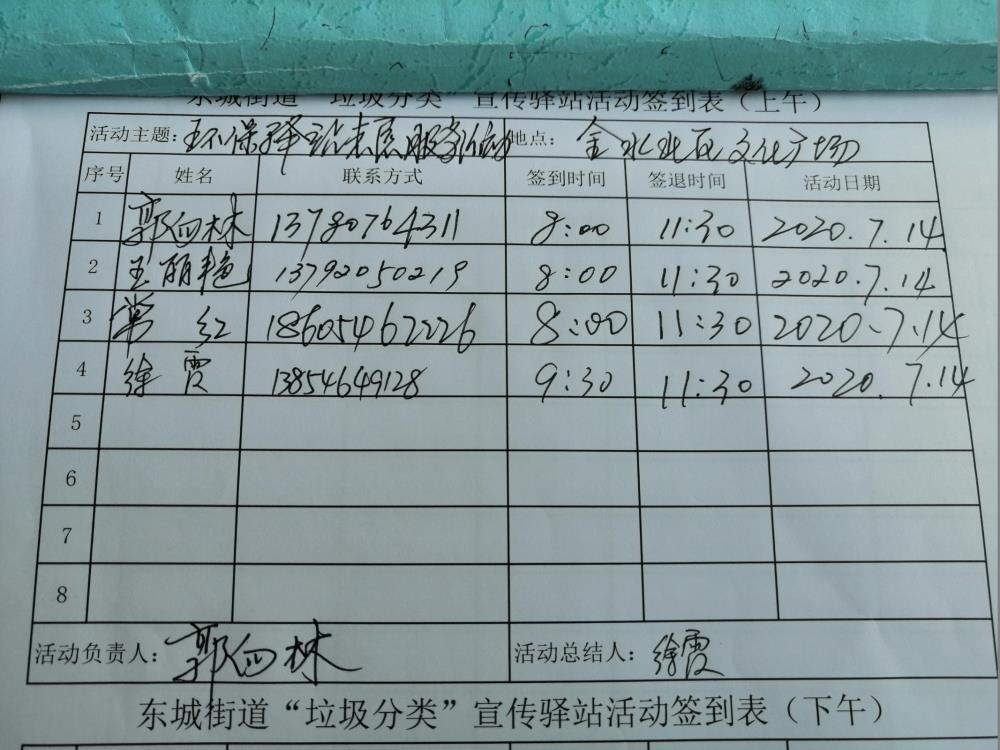 东城街道“垃圾分类”宣传驿站活动签到表（上午）
活动主题: 环保驿站志愿服务活动 地点: 金水北区文化广场
序号 姓名 联系方式 签到时间 签退时间 活动日期
1 郭向林 13780764311 8:00 11:30 2020.7.14
2 王丽艳 13792050219 8:00 11:30 2020.7.14
3 常红 18605462226 8:00 11:30 2020.7.14
4 徐霞 13854649128 9:30 11:30 2020.7.14
5
6
7
8
活动负责人: 郭向林 活动总结人: 徐霞
东城街道“垃圾分类”宣传驿站活动签到表（下午）